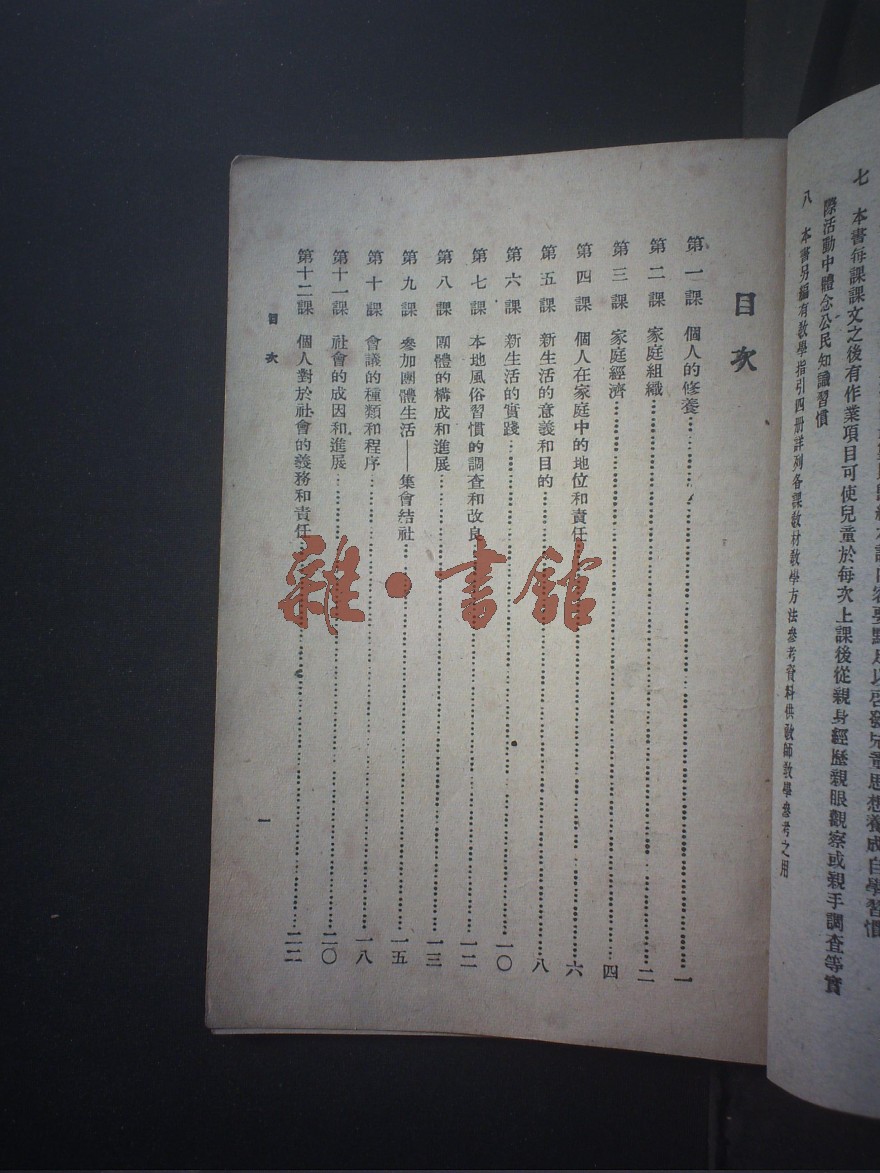 七　本書每課課文之後有作業項目可使兒童於每次上課後從親身經歷親眼觀察或親手調查等實
際活動中體念公民知識習慣
八　本書另編有教學指引四冊詳列各課教材教學方法參考資料供教師教學參考之用
目次
第一課　個人的修養……一
第二課　家庭組織……二
第三課　家庭經濟……四
第四課　個人在家庭中的地位和責任……六
第五課　新生活的意義和目的……八
第六課　新生活的實踐……一〇
第七課　本地風俗習慣的調查和改良……一二
第八課　團體的構成和進展……一三
第九課　參加團體生活——集會結社……一五
第十課　會議的種類和程序……一八
第十一課　社會的成因和進展……二〇
第十二課　個人對於社會的義務和責任……二二
目次
一
雜·書館